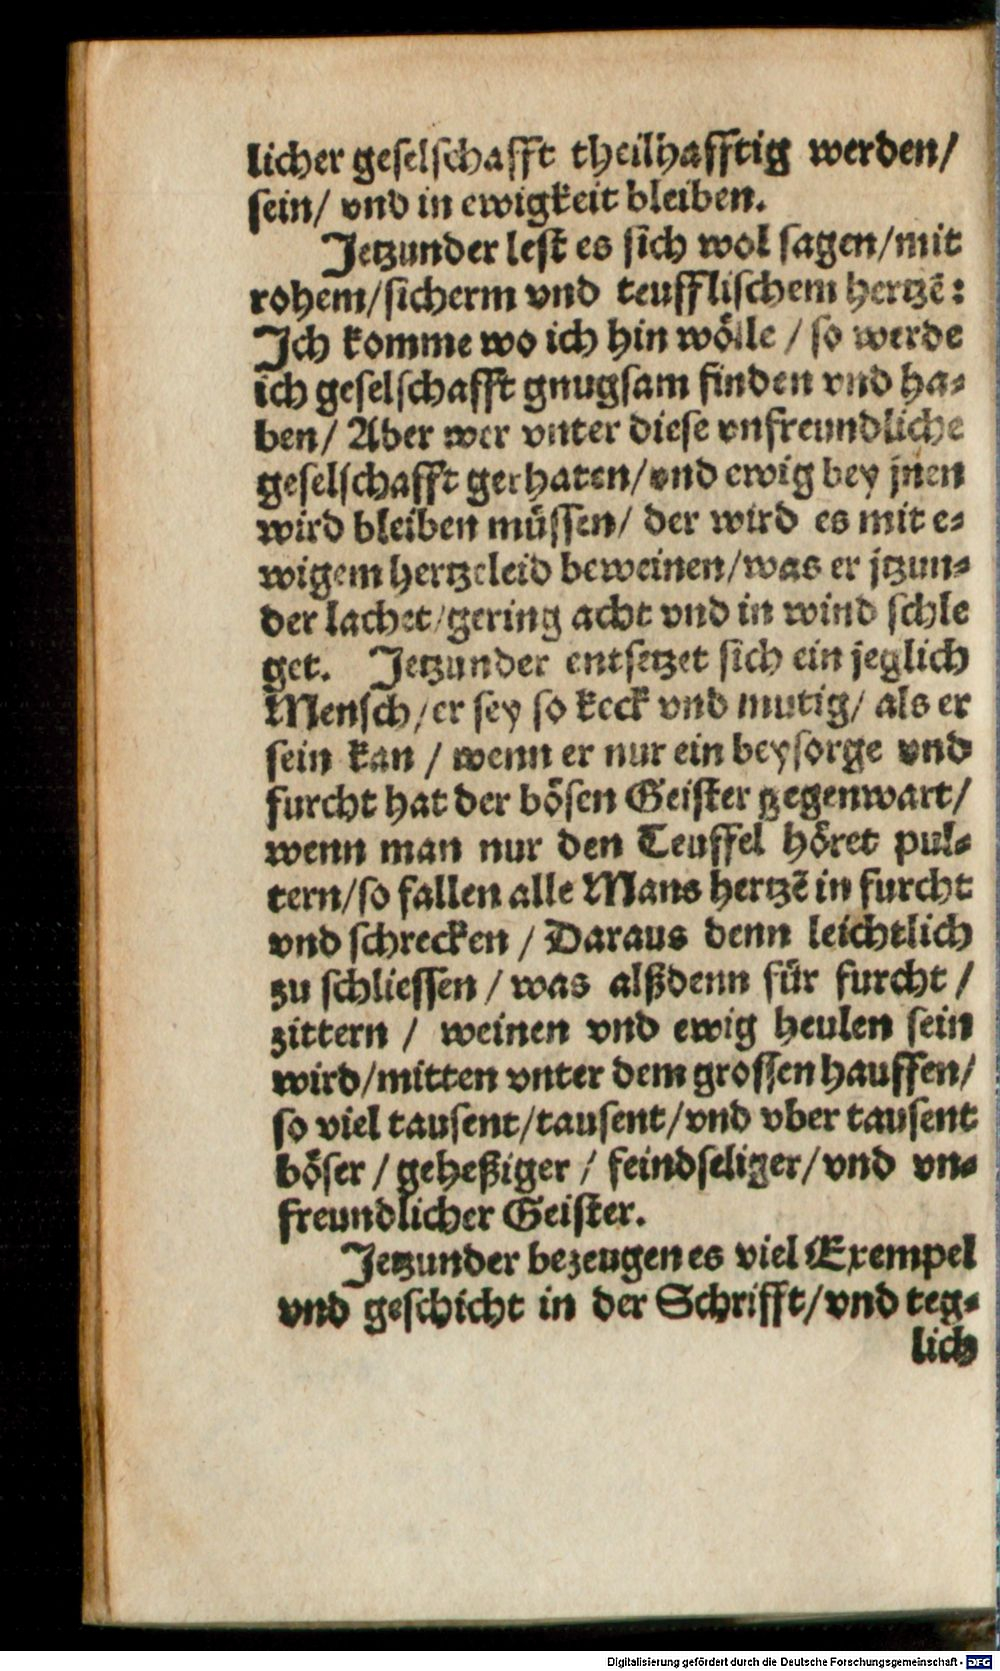 licher geselschafft theilhafftig werden/
sein/ vnd in ewigkeit bleiben.
Jetzunder lest es sich wol sagen/mit
rohem/sicherm vnd teufflischem hertzẽ:
Jch komme wo ich hin wölle / so werde
ich geselschafft gnugsam finden vnd ha-
ben/ Aber wer vnter diese vnfreundliche
geselschafft gerhaten/vnd ewig bey jnen
wird bleiben müssen/ der wird es mit e-
wigem hertzeleid beweinen/was er jtzun-
der lachet/gering acht vnd in wind schle
get. Jetzunder entsetzet sich ein jeglich
Mensch/er sey so keck vnd mutig/ als er
sein kan / wenn er nur ein beysorge vnd
furcht hat der bösen Geister gegenwart/
wenn man nur den Teuffel höret pul-
tern/so fallen alle Mans hertzẽ in furcht
vnd schrecken / Daraus denn leichtlich
zu schliessen / was alßdenn für furcht /
zittern / weinen vnd ewig heulen sein
wird/mitten vnter dem grossen hauffen/
so viel tausent/tausent/vnd vber tausent
böser / geheßiger / feindseliger/vnd vn-
freundlicher Geister.
Jetzunder bezeugen es viel Exempel
vnd geschicht in der Schrifft/vnd teg-
lich
Digitalisierung gefördert durch die Deutsche Forschungsgemeinschaft - DFG